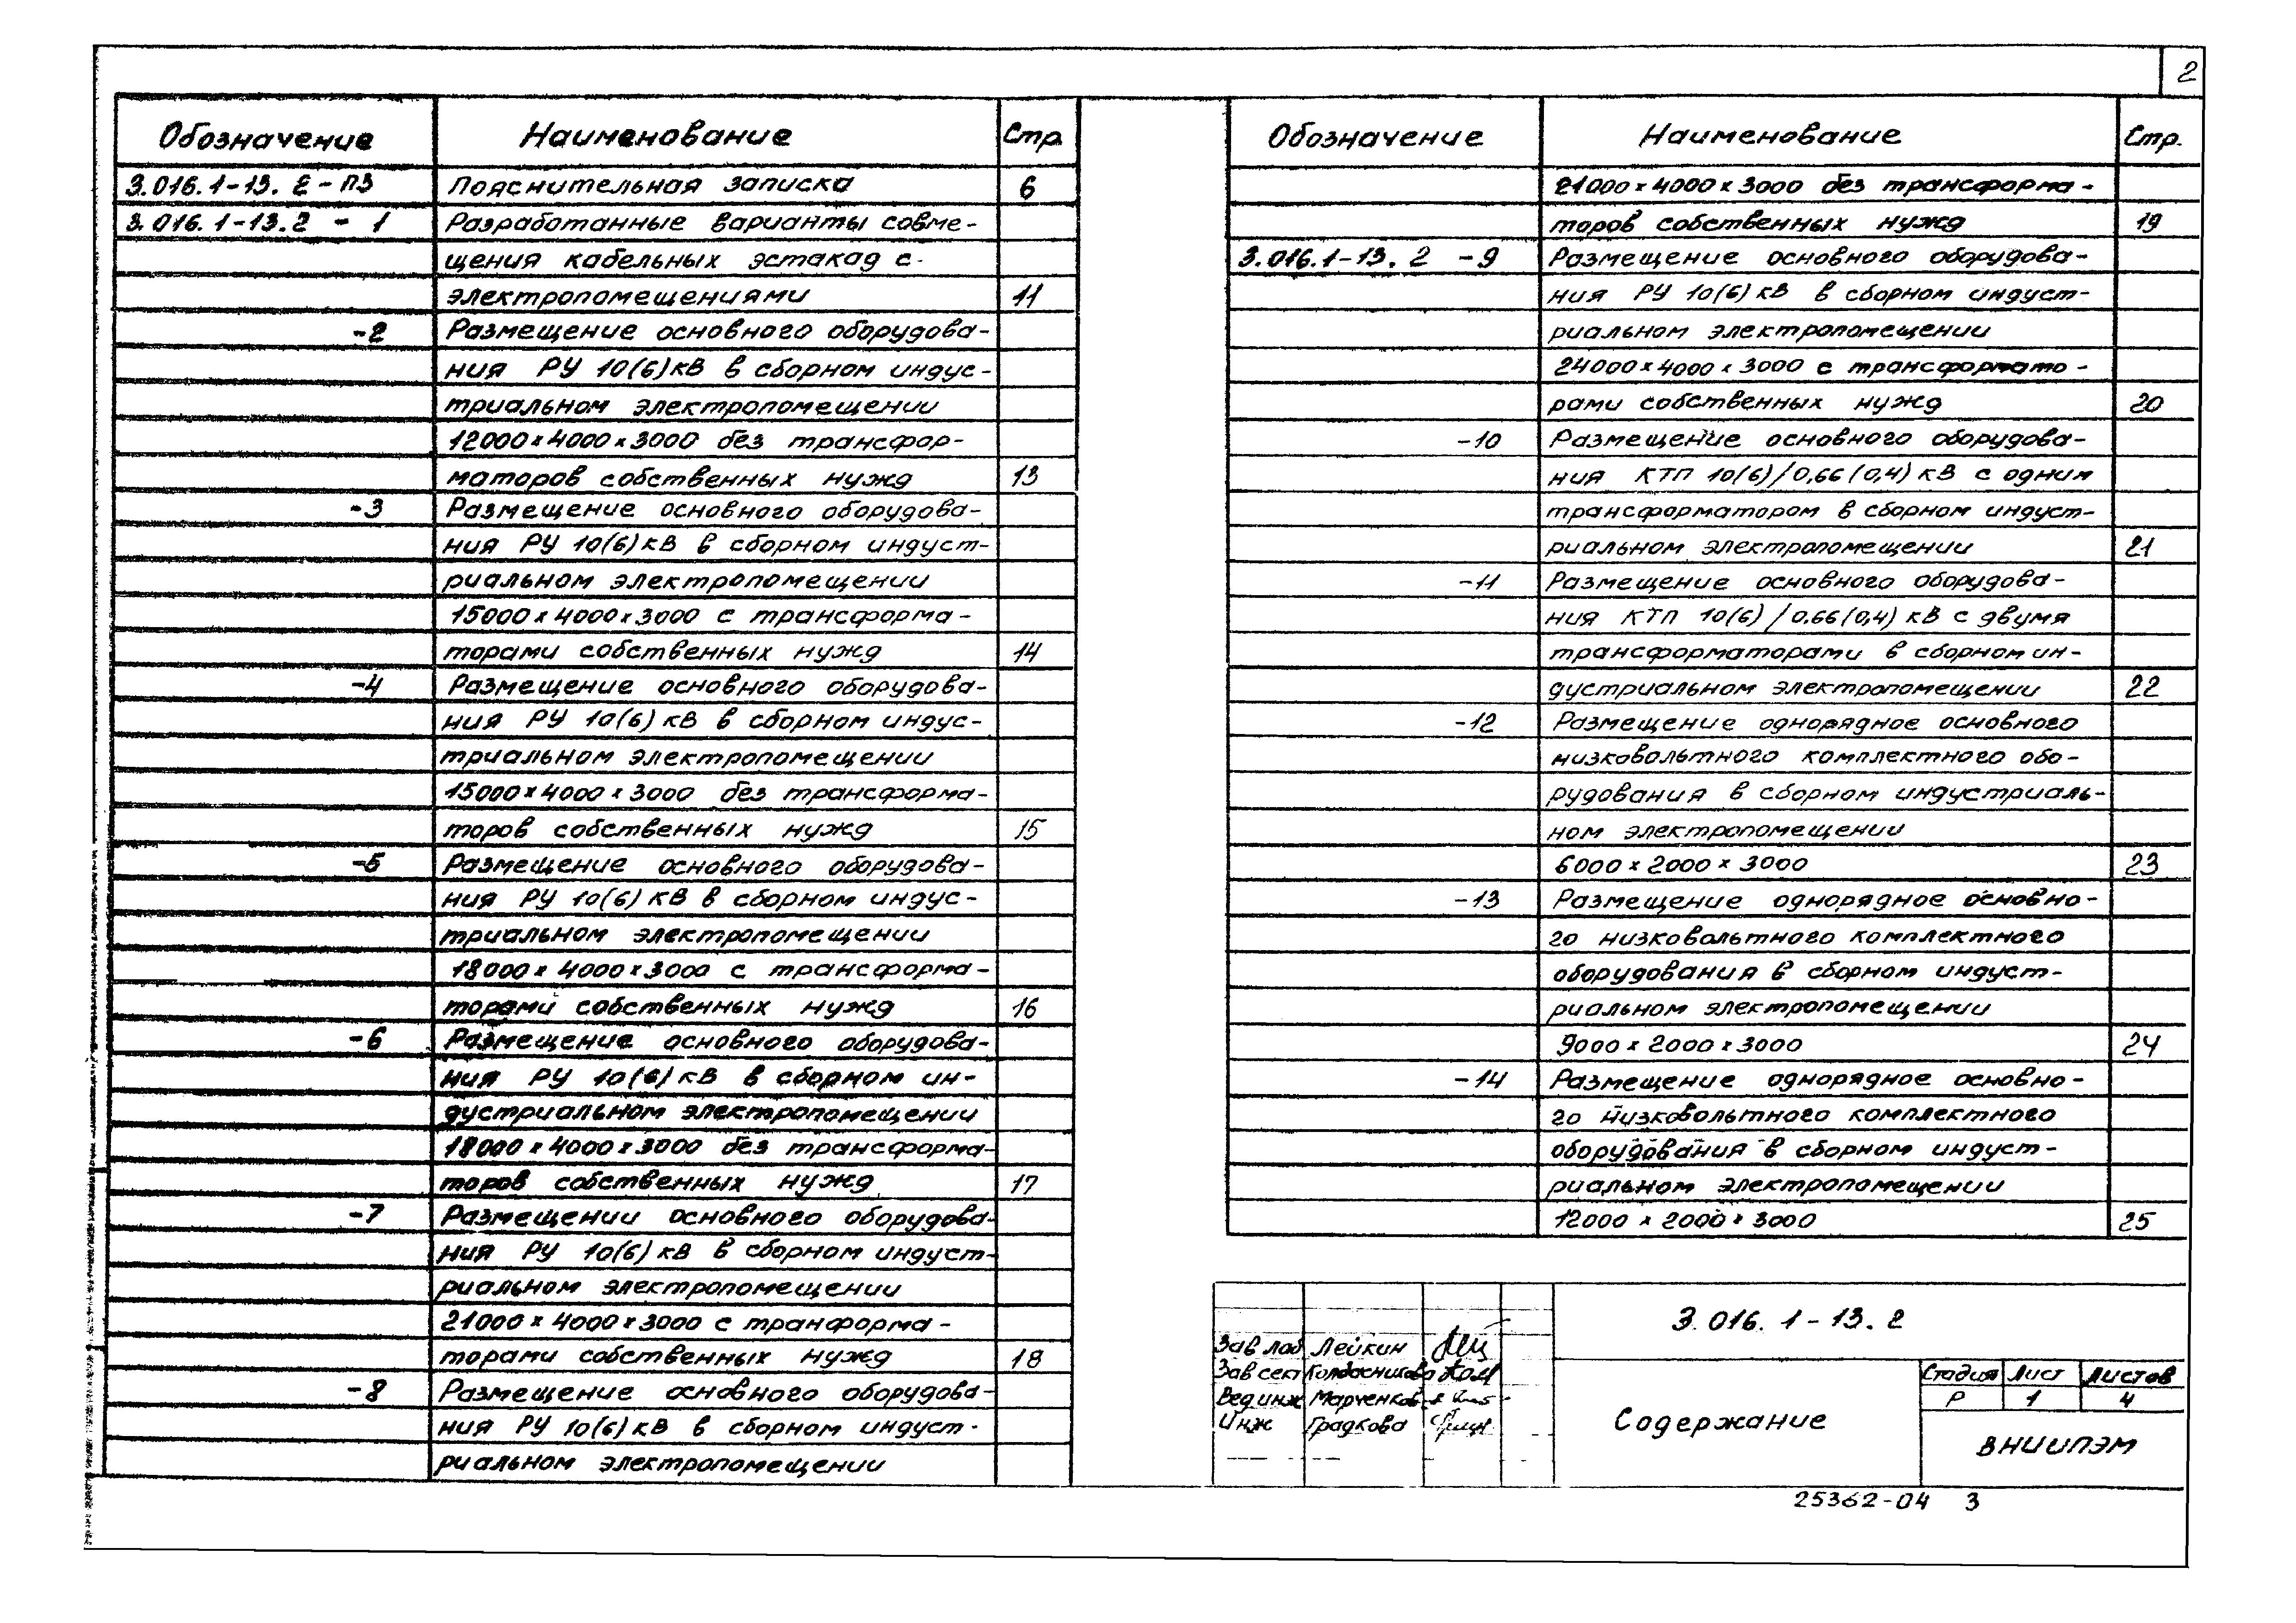 2
Обозначение Наименование Стр.
3.016.1-13.2-ПЗ Пояснительная записка 6
3.016.1-13.2 - 1 Разработанные варианты совме-
щения кабельных эстакад с
электропомещениями 11
-2 Размещение основного оборудова-
ния РУ 10(6)кВ в сборном индус-
триальном электропомещении
12000×4000×3000 без трансфор-
маторов собственных нужд 13
-3 Размещение основного оборудова-
ния РУ 10(6)кВ в сборном индуст-
риальном электропомещении
15000×4000×3000 с трансформа-
торами собственных нужд 14
-4 Размещение основного оборудова-
ния РУ 10(6)кВ в сборном индус-
триальном электропомещении
15000×4000×3000 без трансформа-
торов собственных нужд 15
-5 Размещение основного оборудова-
ния РУ 10(6)кВ в сборном индус-
триальном электропомещении
18000×4000×3000 с трансформа-
торами собственных нужд 16
-6 Размещение основного оборудова-
ния РУ 10(6)кВ в сборном ин-
дустриальном электропомещении
18000×4000×3000 без трансформа-
торов собственных нужд 17
-7 Размещении основного оборудова-
ния РУ 10(6)кВ в сборном индуст-
риальном электропомещении
21000×4000×3000 с транформа-
торами собственных нужд 18
-8 Размещение основного оборудова-
ния РУ 10(6)кВ в сборном индуст-
риальном электропомещении
Обозначение Наименование Стр.
21000×4000×3000 без трансформа-
торов собственных нужд 19
3.016.1-13.2 -9 Размещение основного оборудова-
ния РУ 10(6)кВ в сборном индуст-
риальном электропомещении
24000×4000×3000 с трансформато-
рами собственных нужд 20
-10 Размещение основного оборудова-
ния КТП 10(6)/0,66(0,4)кВ с одним
трансформатором в сборном индуст-
риальном электропомещении 21
-11 Размещение основного оборудова-
ния КТП 10(6)/0.66(0,4)кВ с двумя
трансформаторами в сборном ин-
дустриальном электропомещении 22
-12 Размещение однорядное основного
низковольтного комплектного обо-
рудования в сборном индустриаль-
ном электропомещении
6000×2000×3000 23
-13 Размещение однорядное основно-
го низковольтного комплектного
оборудования в сборном индуст-
риальном электропомещении
9000×2000×3000 24
-14 Размещение однорядное основно-
го низковольтного комплектного
оборудования в сборном индуст-
риальном электропомещении
12000×2000×3000 25
3.016.1-13.2
Зав лаб Лейкин
Зав сект Колдасникова
Вед инж Марченков
Инж Градкова
Содержание
Стадия Лист Листов
Р 1 4
ВНИИПЭМ
25362-04 3